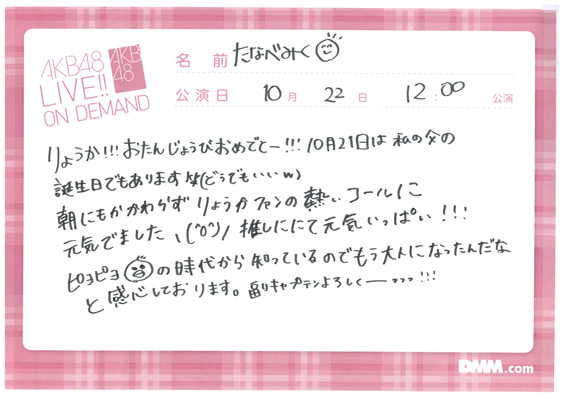 AKB48
LIVE!!
ON DEMAND
AKB
48
名前 たなべみく
公演日 10月 22日 12:00 公演
りょうか!!!おたんじょうびおめでとー!!!10月21日は私の父の
誕生日でもあります笑(どうでもいいw)
朝にもかかわらずりょうかファンの熱いコールに
元気でました、(^o^)/ 推しににて元気いっぱい!!!
ピヨピヨの時代から知っているのでもう大人になったんだな
と感心しております。副キャプテンよろしくーッッッ!!!
DMM.com